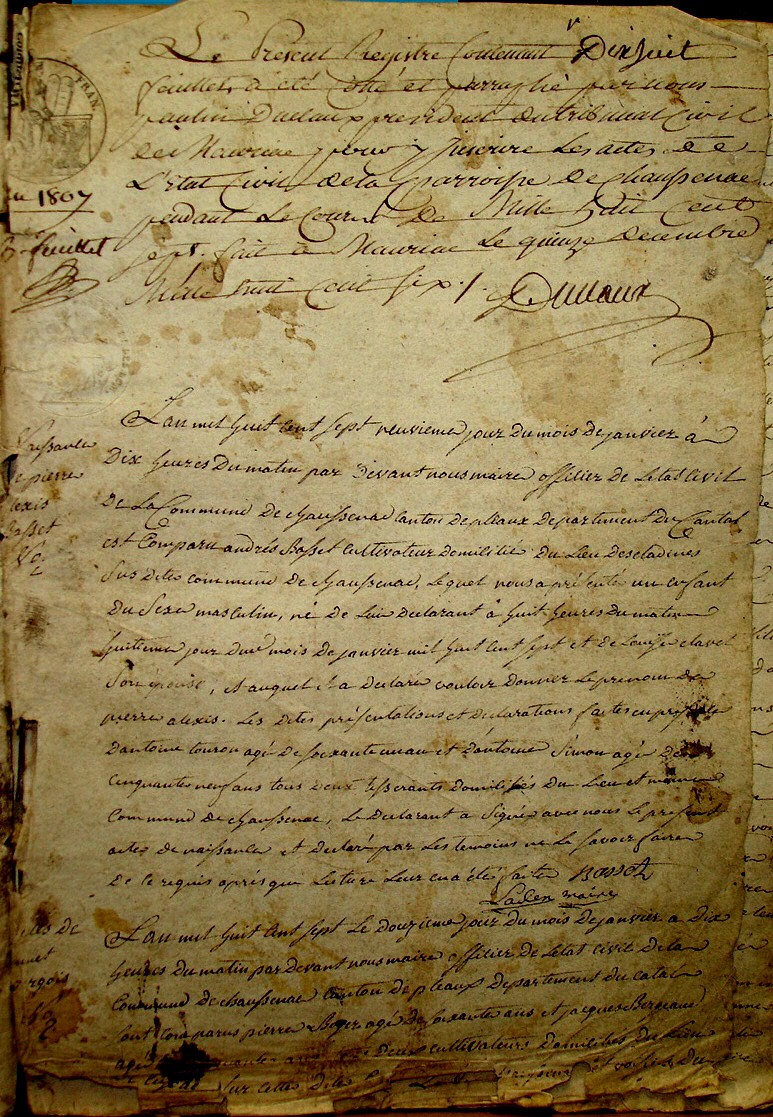 Le Present Registre Contenant Dixhuit
feuillets, a été Cotté et parraphé par nous
paulin Duclaux president du tribunal Civil
de Mauriac pour y Inscrire Les actes de
L'Etat Civil de la parroisse de Chaussenac
pendant Le Cours de Mille huit Cent
sept. fait a Mauriac Le quinze decembre
Mille huit Cent six ./. Duclaux
1807
feuillet
FRAN
L'an mil huit cent sept neuvieme jour du mois de janvier à
Dix heures du matin par devant nous maire officier de Letat Civil
De La Commune de chaussenac Canton de pleaux Departement du Cantal
est Comparu andrés Basset Cultivateur domicilié du Lieu Descladines
Sus dite commune de chaussenac, Lequel nous a présenté un enfant
du Sexe masculin, né de Lui declarant à huit heures du matin
huitieme jour du mois de janvier mil huit cent sept et de Louise clavel
Son épouse, et auquel il a declaré vouloir donner Le prenom de
pierre alexis. Les dites présentations et declarations faites en presence
d'antoine touron agé de soixante un an et d'antoine Simon agé de
cinquante neuf ans tous deux tisserants domiciliés du Lieu et meme
Commune de chaussenac, Le declarant a Signé avec nous Le présent
acte de naissance et declaré par Les temoins ne Le savoir faire
de ce requis aprés que Lecture Leur en a été faite Basset
maire
Naissance
de pierre
alexis
Basset
No
L'an mil huit cent sept Le douzieme jour du mois de janvier a dix
heures du matin par devant nous maire officier de Letat civil de la
Commune de chaussenac Canton de pleaux departement du catal
Sont Comparus pierre agé de soixante ans et jacques
agé ans deux cultivateurs domiciliés du Lieu
Sur cette dite et voisin du